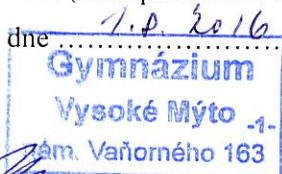 dne 1.8.2016
Gymnázium
Vysoké Mýto -1-
nám. Vaňorného 163